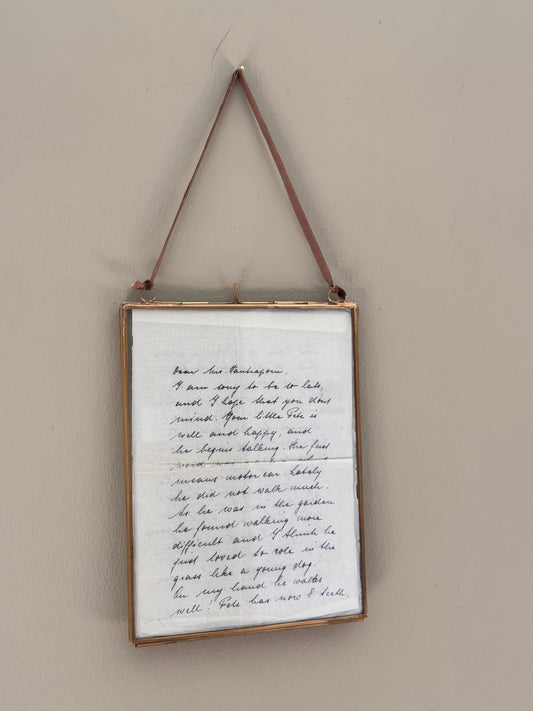 Dear Mrs.
I am sorry to be so late,
and I hope that you dont
mind. Your little Pete is
well and happy, and
he begins talking. The first
word
means motor car. Lately
he did not walk much.
As he was in the garden
he found walking more
difficult and I think he
just loved to role in the
grass like a young dog.
On my hand he walks
well! Pete has now 8 teeth,